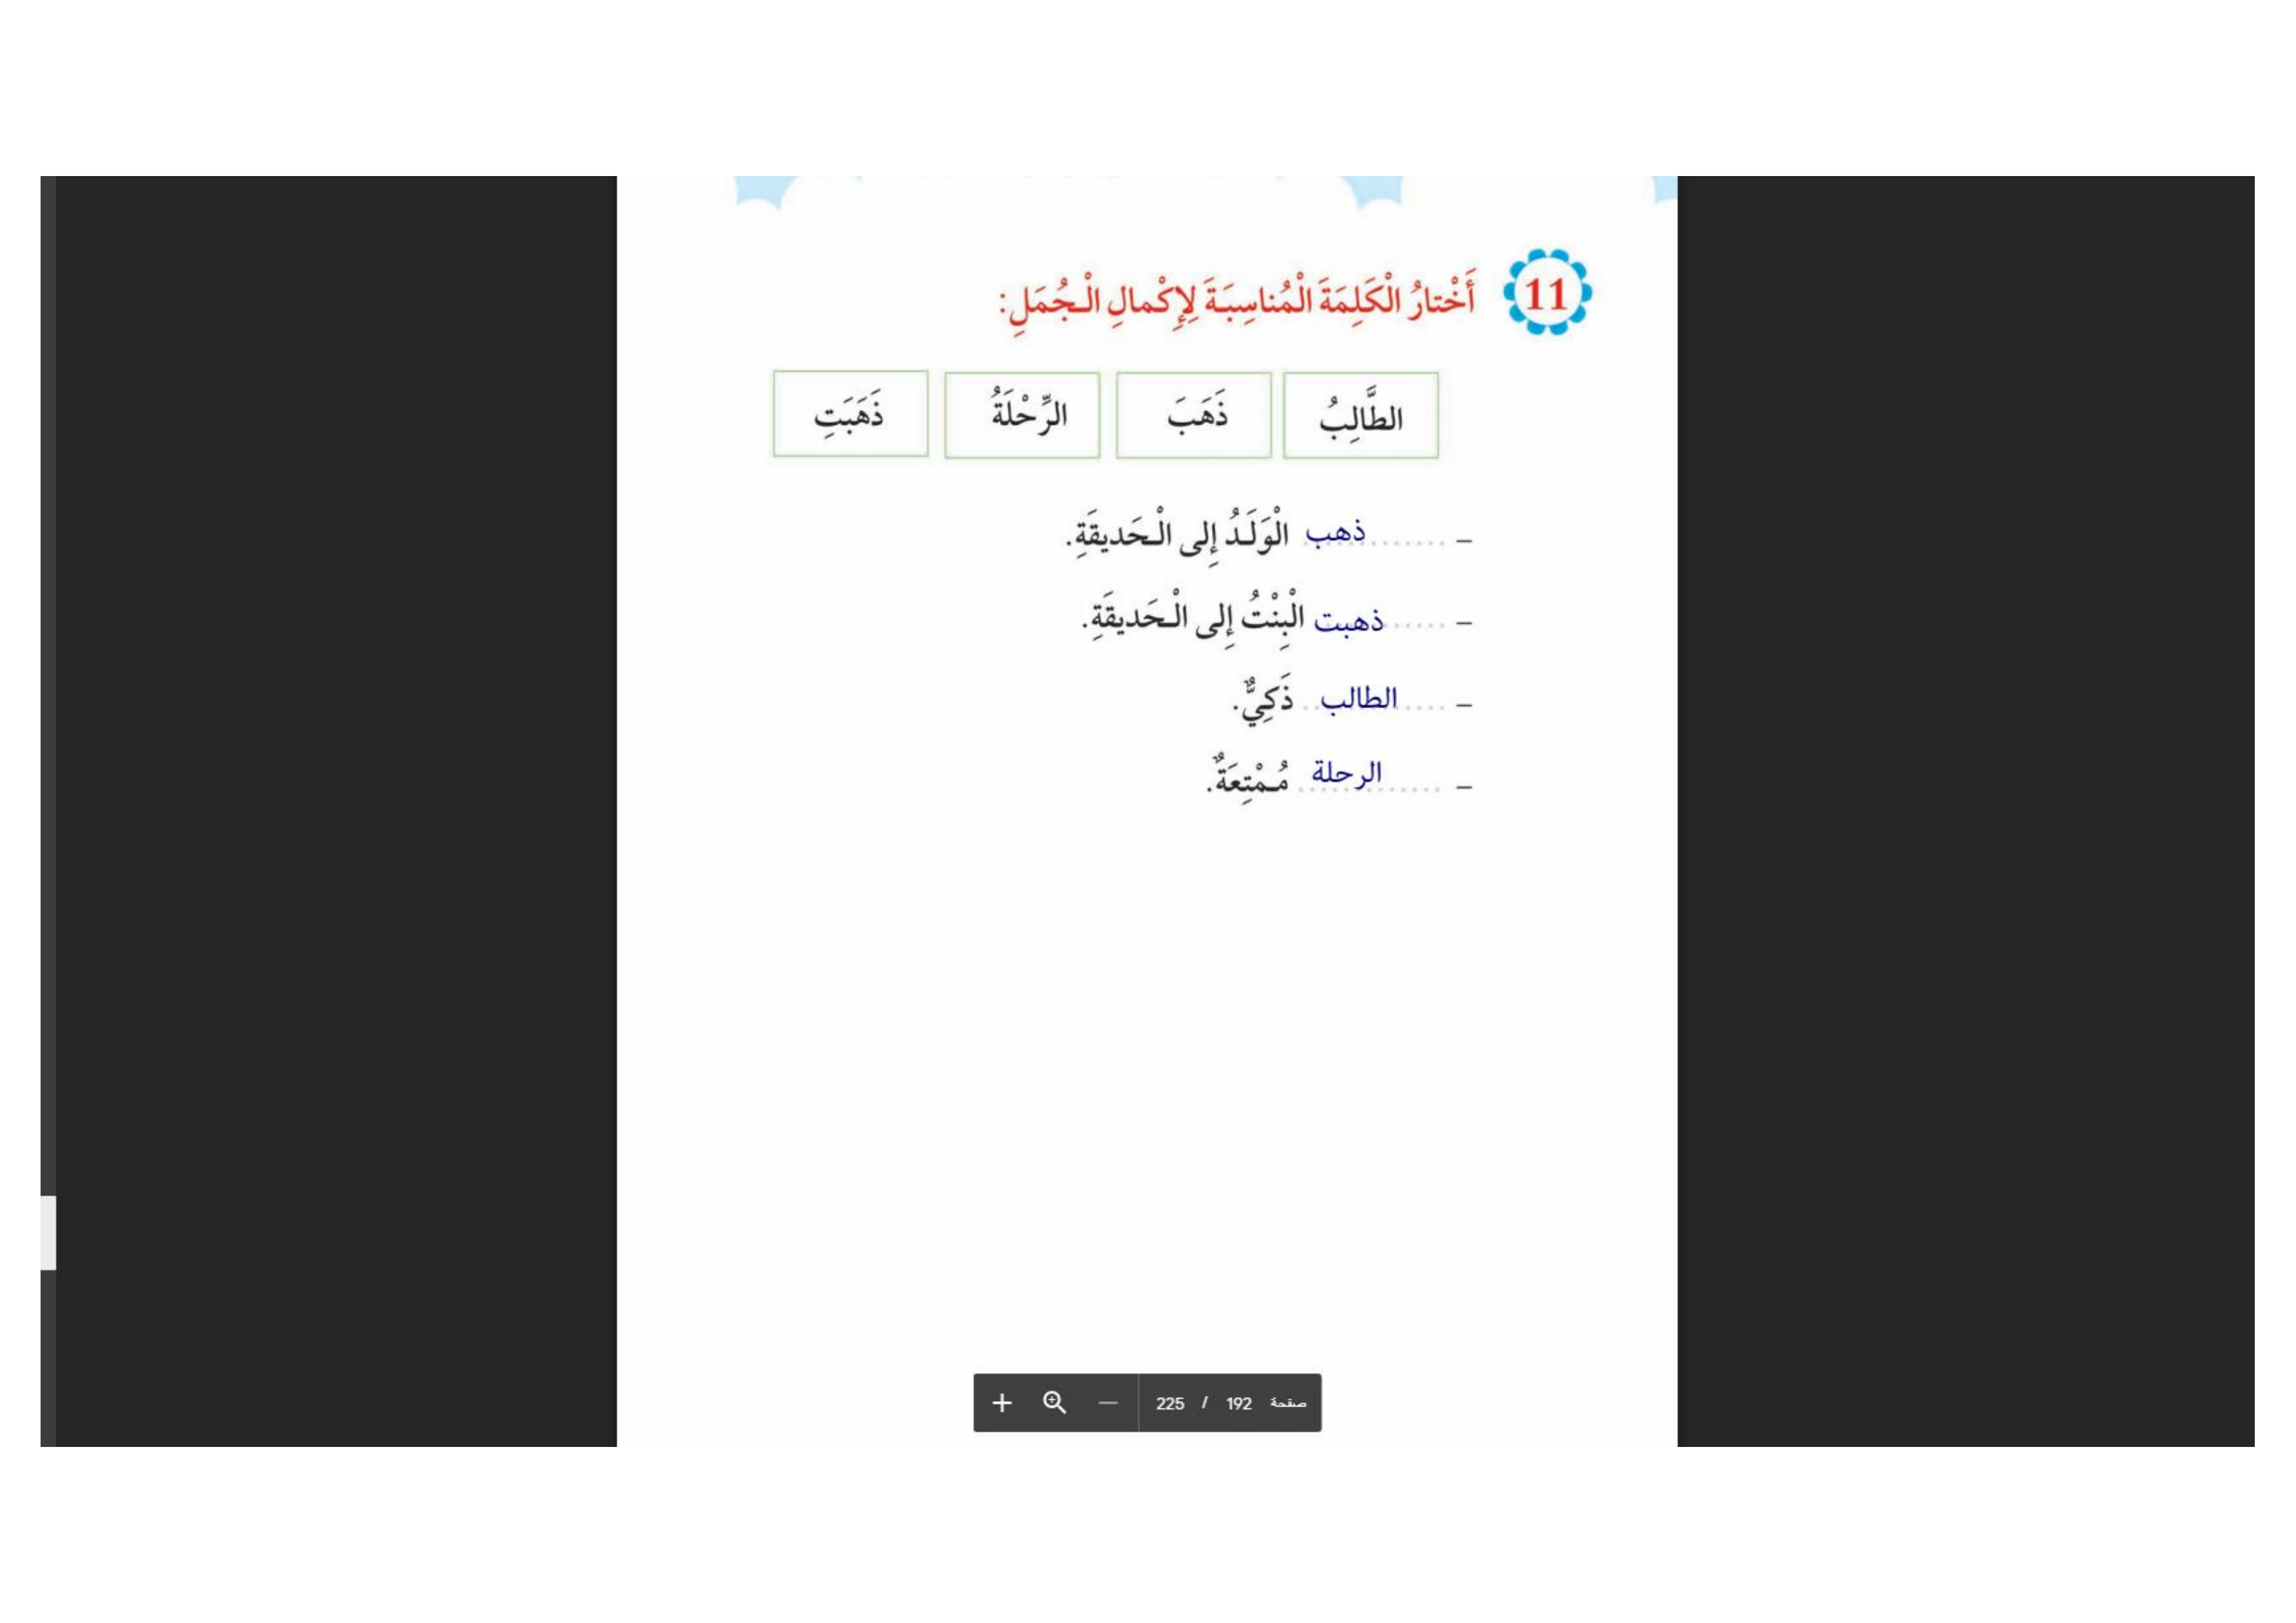 11 أَخْتارُ الْكَلِمَةَ الْمُناسِبَةَ لِإِكْمالِ الْجُمَلِ:
الطَّالِبُ ذَهَبَ الرِّحْلَةُ ذَهَبَتِ
– ............ ذهب الْوَلَدُ إِلى الْحَديقَةِ.
– ..... ذهبت الْبِنْتُ إِلى الْحَديقَةِ.
– .... الطالب .. ذَكِيٌّ.
– ............ الرحلة مُمْتِعَةٌ.
صفحة 192 / 225 — +